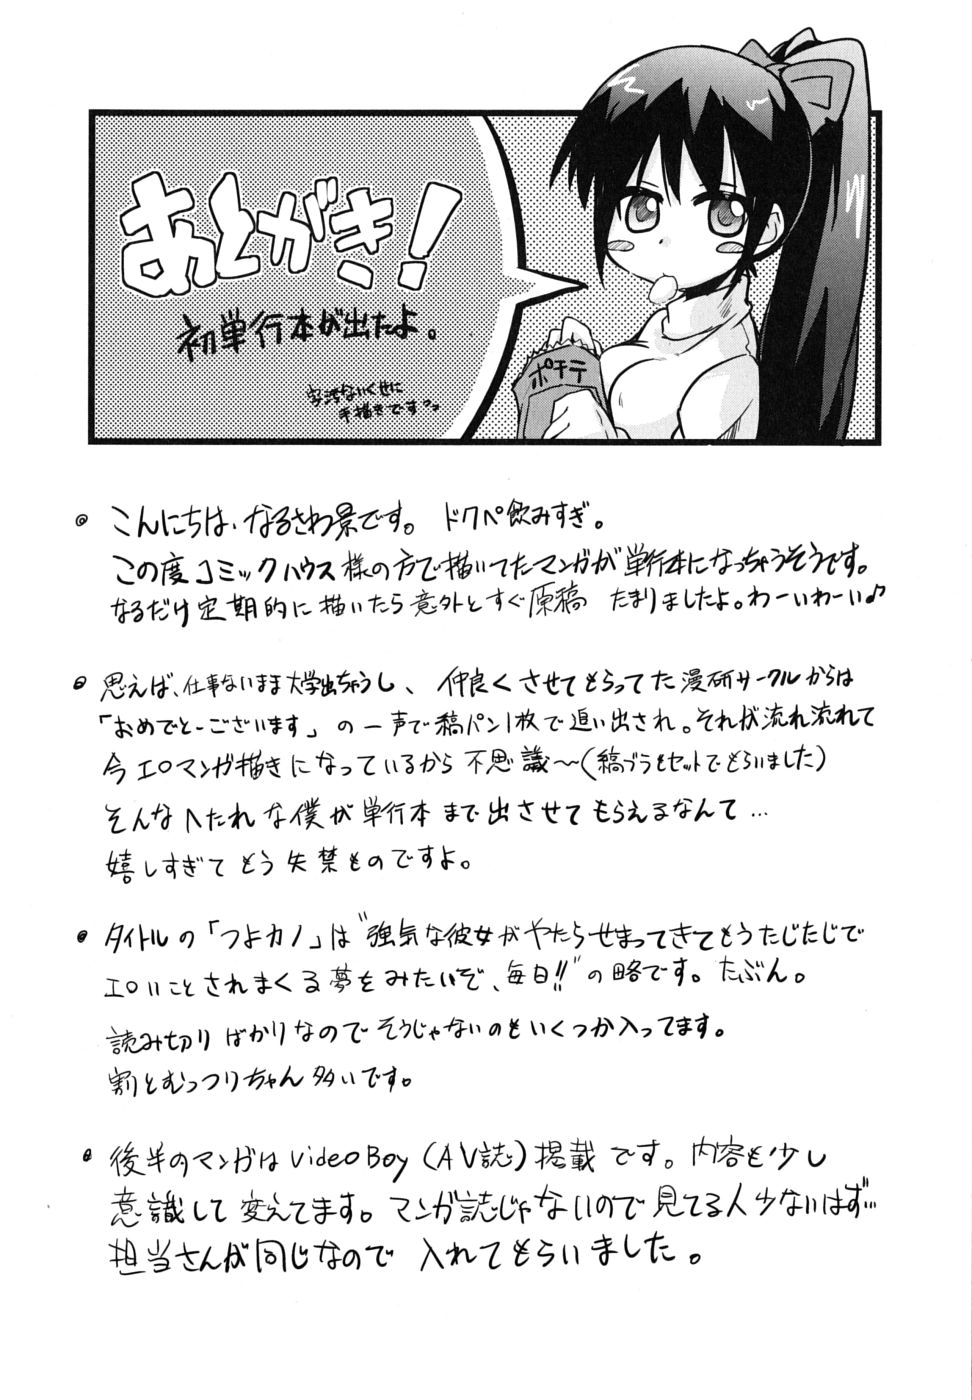 あとがき!
初単行本が出たよ。
字汚ないくせに
手描きです?っ
ポテチ
こんにちは、なるさわ景です。 ドクペ飲みすぎ。
この度コミックハウス様の方で描いてたマンガが単行本になっちゃうそうです。
なるだけ定期的に描いたら意外とすぐ原稿 たまりましたよ。わーいわーい♪
思えば、仕事ないまま大学出ちゃうし、仲良くさせてもらってた漫研サークルからは
「おめでとーございます」の一声で縞パン1枚で追い出され。それ状流れ流れて
今エロマンガ描きになっているから不思議〜(縞ブラもセットでもらいました)
そんなヘたれな僕が単行本まで出させてもらえるなんて…
嬉しすぎてもう失禁ものですよ。
タイトルの「つよカノ」は"強気な彼女がやたらせまってきてもうたじたじで
エロいことされまくる夢をみたいぞ、毎日!!"の略です。たぶん。
読み切りばかりなのでそうじゃないのもいくつか入ってます。
割とむっつりちゃん多いです。
後半のマンガはVideoBoy(AV誌)掲載です。内容も少し
意識して変えてます。マンガ誌じゃないので見てる人少ないはず…
担当さんが同じなので入れてもらいました。